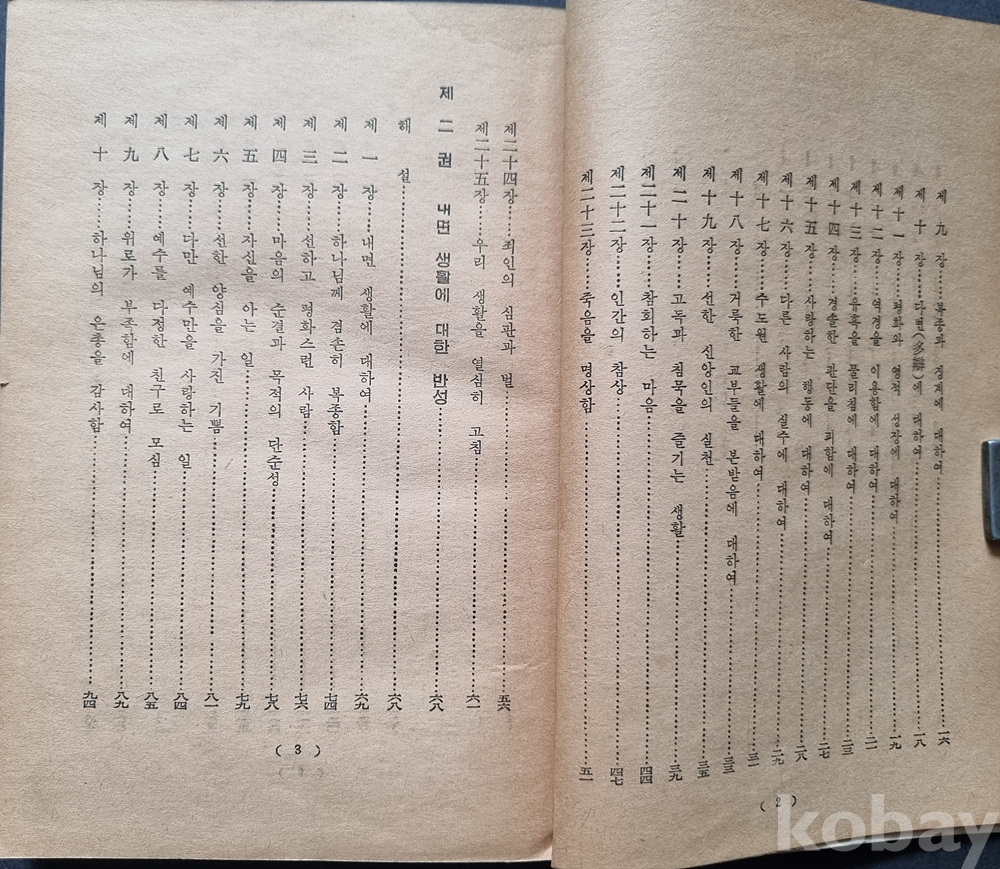 제 九 장……복종과 절제에 대하여……一六
제 十 장……다변(多辯)에 대하여……一八
제十一 장……평화와 영적 성장에 대하여……一九
제十二 장……역경을 이용함에 대하여……二一
제十三 장……유혹을 물리침에 대하여……二三
제十四 장……경솔한 판단을 피함에 대하여……二七
제十五 장……사랑하는 행동에 대하여……二八
제十六 장……다른 사람의 실수에 대하여……二九
제十七 장……수도원 생활에 대하여……三二
제十八 장……거룩한 교부들을 본받음에 대하여……三三
제十九 장……선한 신앙인의 실천……三五
제二十 장……고독과 침묵을 즐기는 생활……三九
제二十一장……참회하는 마음……四四
제二十二장……인간의 참상……四七
제二十三장……죽음을 명상함……五一
( 2 )
제二十四장……죄인의 심판과 벌……五六
제二十五장……우리 생활을 열심히 고침……六一
제 二 권 내면 생활에 대한 반성……六八
해 설……六八
제 一 장……내면 생활에 대하여……六九
제 二 장……하나님께 겸손히 복종함……七四
제 三 장……선하고 평화스런 사람……七六
제 四 장……마음의 순결과 목적의 단순성……七八
제 五 장……자신을 아는 일……七九
제 六 장……선한 양심을 가진 기쁨……八一
제 七 장……다만 예수만을 사랑하는 일……八四
제 八 장……예수를 다정한 친구로 모심……八五
제 九 장……위로가 부족함에 대하여……八九
제 十 장……하나님의 은총을 감사함……九四
( 3 )
kobay